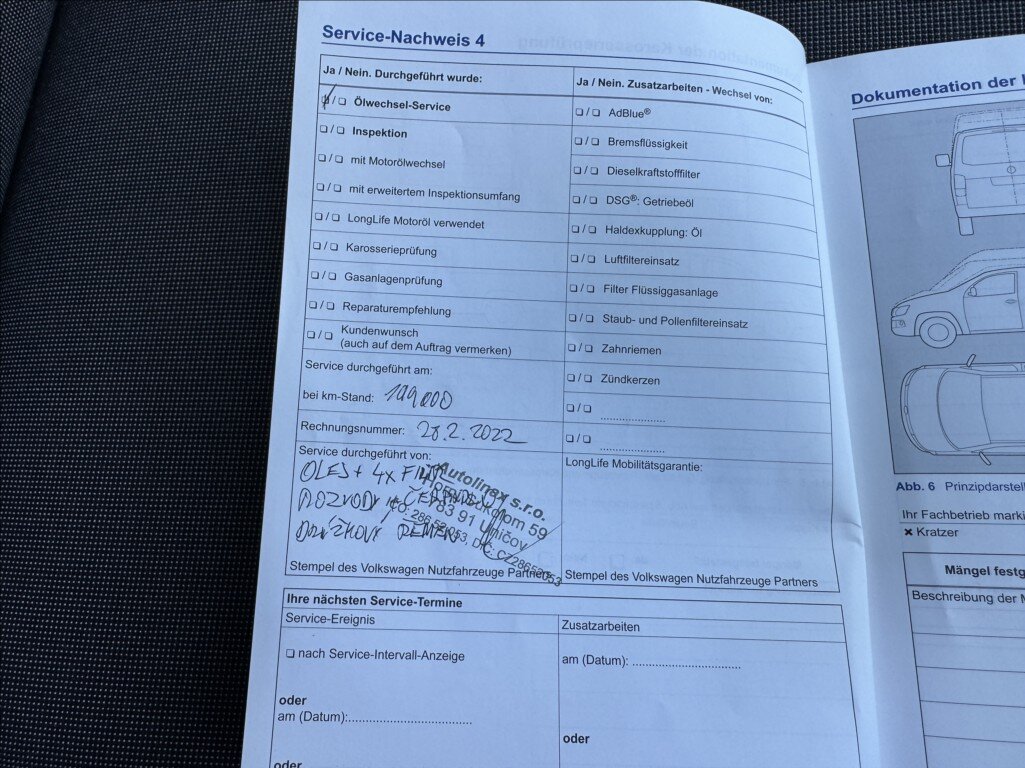 Service-Nachweis 4
Ja / Nein. Durchgeführt wurde:
❏ / ❏ Ölwechsel-Service
❏ / ❏ Inspektion
❏ / ❏ mit Motorölwechsel
❏ / ❏ mit erweitertem Inspektionsumfang
❏ / ❏ LongLife Motoröl verwendet
❏ / ❏ Karosserieprüfung
❏ / ❏ Gasanlagenprüfung
❏ / ❏ Reparaturempfehlung
❏ / ❏ Kundenwunsch
(auch auf dem Auftrag vermerken)
Service durchgeführt am:
bei km-Stand: 199000
Rechnungsnummer: 28.2.2022
Service durchgeführt von:
OLEJ + 4x
ROZVODY +
DRÁŽKOVÝ ŘEMEN
Autolinex s.r.o.
59
783 91 Uničov
IČO: 286 52 053, DIČ: CZ28652053
Stempel des Volkswagen Nutzfahrzeuge Partners
Ja / Nein. Zusatzarbeiten - Wechsel von:
❏ / ❏ AdBlue®
❏ / ❏ Bremsflüssigkeit
❏ / ❏ Dieselkraftstofffilter
❏ / ❏ DSG®: Getriebeöl
❏ / ❏ Haldexkupplung: Öl
❏ / ❏ Luftfiltereinsatz
❏ / ❏ Filter Flüssiggasanlage
❏ / ❏ Staub- und Pollenfiltereinsatz
❏ / ❏ Zahnriemen
❏ / ❏ Zündkerzen
❏ / ❏ ....................
❏ / ❏ ....................
LongLife Mobilitätsgarantie:
Stempel des Volkswagen Nutzfahrzeuge Partners
Ihre nächsten Service-Termine
Service-Ereignis
❏ nach Service-Intervall-Anzeige
oder
am (Datum):..................................
oder
Zusatzarbeiten
am (Datum): ..............................
oder
Dokumentation der
Abb. 6 Prinzipdarstell
Ihr Fachbetrieb marki
✖ Kratzer
Mängel festg
Beschreibung der M